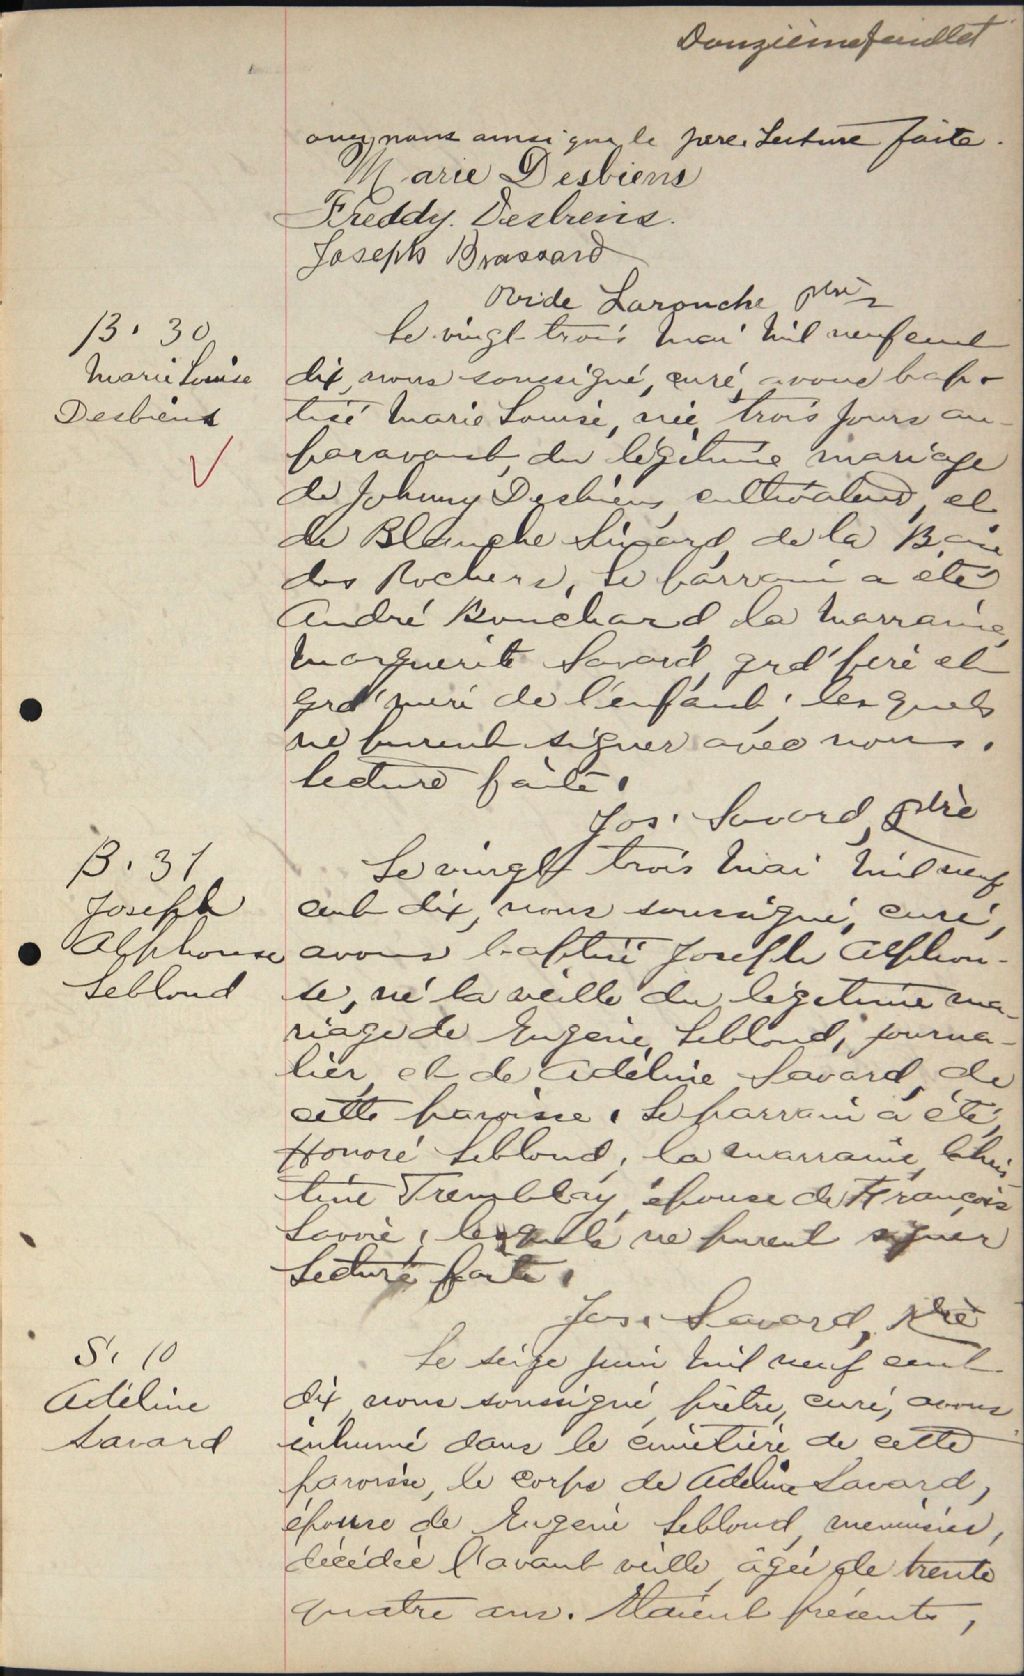 Douzième feuillet
avec nous ainsi que le père. Lecture faite.
Marie Desbiens
Freddy Desbiens.
Joseph Brassard
Ovide Larouche ptre
B. 30
Marie Louise
Desbiens
Le vingt-trois Mai Mil neuf cent
dix, nous soussigné, curé, avons bap-
tisé Marie Louise, née trois jours au-
paravant, du légitime mariage
de Johnny Desbiens, cultivateur, et
de Blanche Simard, de la Baie
des Rochers. Le parrain a été
André Bouchard la marraine,
Marguerite Savard, grd'père et
grd'mère de l'enfant; lesquels
ne purent signer avec nous.
Lecture faite.
Jos. Savard, ptre
B. 31
Joseph
Alphonse
Leblond
Le vingt trois Mai Mil neuf
cent dix, nous soussigné, curé,
avons baptisé Joseph Alphon-
se, né la veille du légitime ma-
riage de Eugène Leblond, journa-
lier, et de Adéline Savard, de
cette paroisse. Le parrain a été,
Honoré Leblond, la marraine, Chris-
tine Tremblay, épouse de François
Savoie, lesquels ne purent signer
Lecture faite.
Jos. Savard, ptre
S. 10
Adéline
Savard
Le seize juin Mil neuf cent
dix, nous soussigné prêtre, curé, avons
inhumé dans le cimetière de cette
paroisse, le corps de Adeline Savard,
épouse de Eugène Leblond, menuisier,
décédée l'avant veille, âgée de trente
quatre ans. Etaient présents,